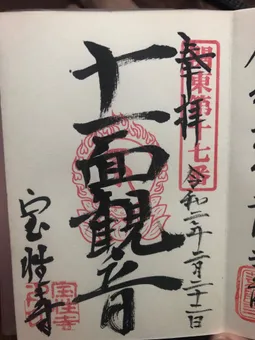 奉拝
関東第十七番
令和二年二月二十二日
十一面観音
宝性寺
宝性寺